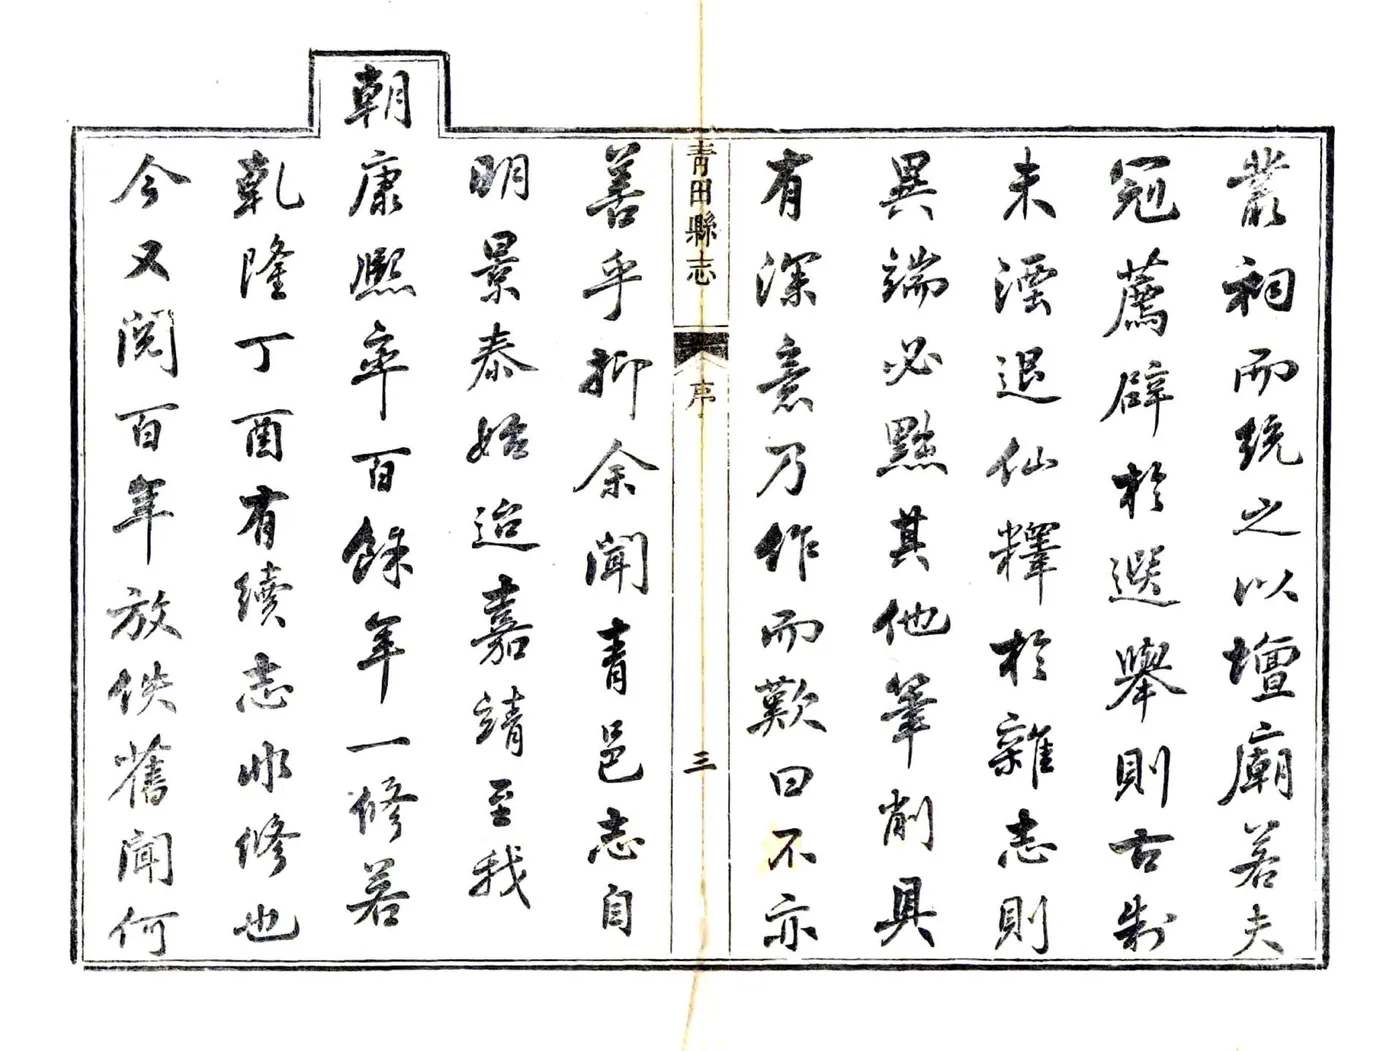 叢祠而統之以壇廟若夫
冠薦辟於選舉則古制
未湮退仙釋於雜志則
異端必黜其他筆削具
有深意乃作而歎曰不亦
青田縣志
序
三
善乎抑余聞青邑志自
明景泰始迨嘉靖至我
朝
康熙年百餘年一修若
乾隆丁酉有續志非修也
今又閱百年放佚舊聞何